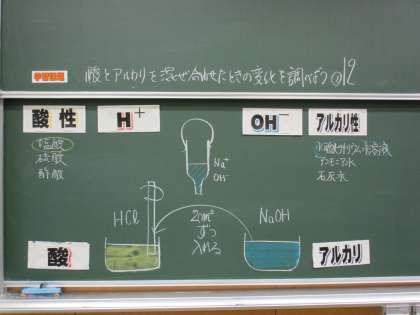 学習課題 酸とアルカリを混ぜ合わせたときの変化を調べよう P.12
酸性 H⁺ OH⁻ アルカリ性
塩酸
硫酸
酢酸
水酸化ナトリウム水溶液
アンモニア水
石灰水
Na⁺
OH⁻
HCl
2cm³
ずつ
入れる
NaOH
酸
アルカリ